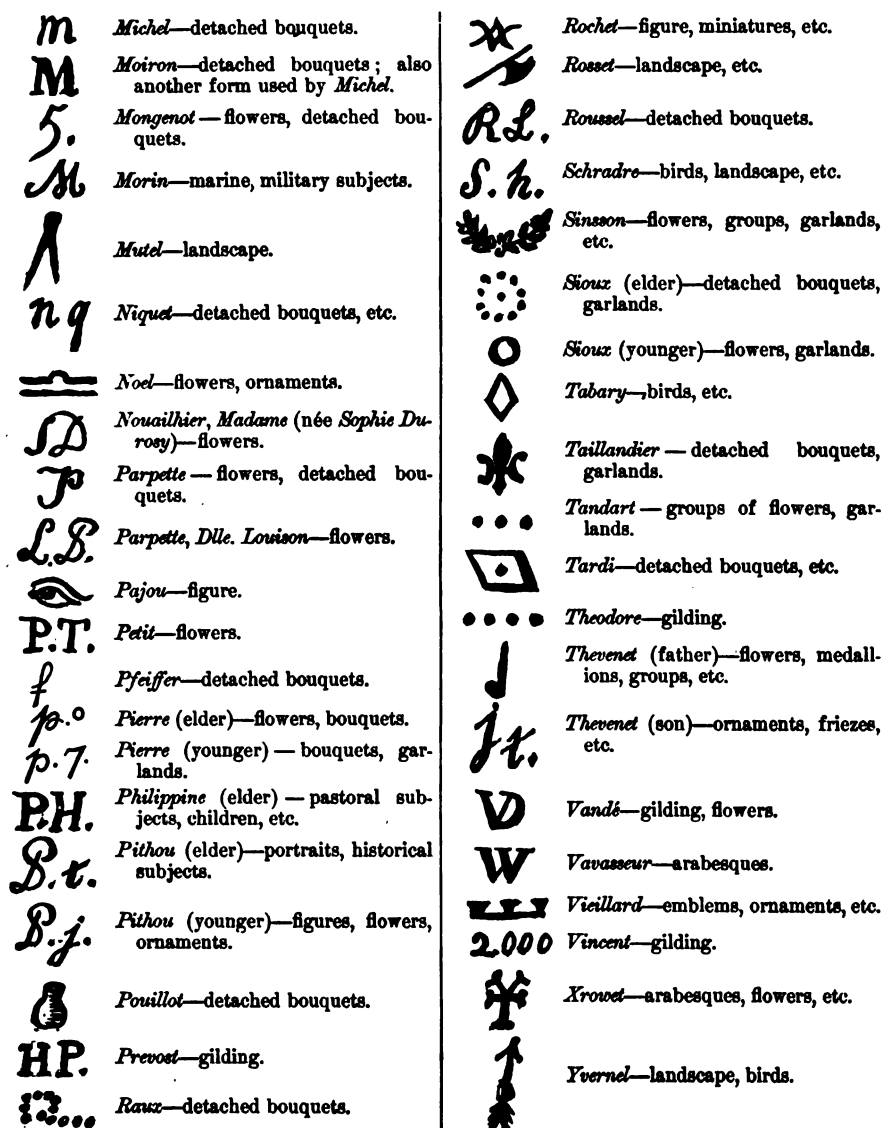 m Michel—detached bouquets.
M Moiron—detached bouquets; also
another form used by Michel.
5. Mongenot — flowers, detached bou-
quets.
M Morin—marine, military subjects.
Mutel—landscape.
n q Niquet—detached bouquets, etc.
Noel—flowers, ornaments.
SD Nouailhier, Madame (née Sophie Du-
rosy)—flowers.
P Parpette — flowers, detached bou-
quets.
L.P. Parpette, Dlle. Louison—flowers.
Pajou—figure.
P.T. Petit—flowers.
f Pfeiffer—detached bouquets.
p.o Pierre (elder)—flowers, bouquets.
p.7. Pierre (younger) — bouquets, gar-
lands.
P.H. Philippine (elder) — pastoral sub-
jects, children, etc.
P.t. Pithou (elder)—portraits, historical
subjects.
P.j. Pithou (younger)—figures, flowers,
ornaments.
Pouillot—detached bouquets.
HP. Prevost—gilding.
Raux—detached bouquets.
Rochet—figure, miniatures, etc.
Rosset—landscape, etc.
R L. Roussel—detached bouquets.
S. h. Schradre—birds, landscape, etc.
Sinsson—flowers, groups, garlands,
etc.
Sioux (elder)—detached bouquets,
garlands.
Sioux (younger)—flowers, garlands.
Tabary—birds, etc.
Taillandier — detached bouquets,
garlands.
Tandart — groups of flowers, gar-
lands.
Tardi—detached bouquets, etc.
Theodore—gilding.
Thevenet (father)—flowers, medall-
ions, groups, etc.
j t. Thevenet (son)—ornaments, friezes,
etc.
VD Vandé—gilding, flowers.
W Vavasseur—arabesques.
Vieillard—emblems, ornaments, etc.
2.000 Vincent—gilding.
Xrowet—arabesques, flowers, etc.
Yvernel—landscape, birds.